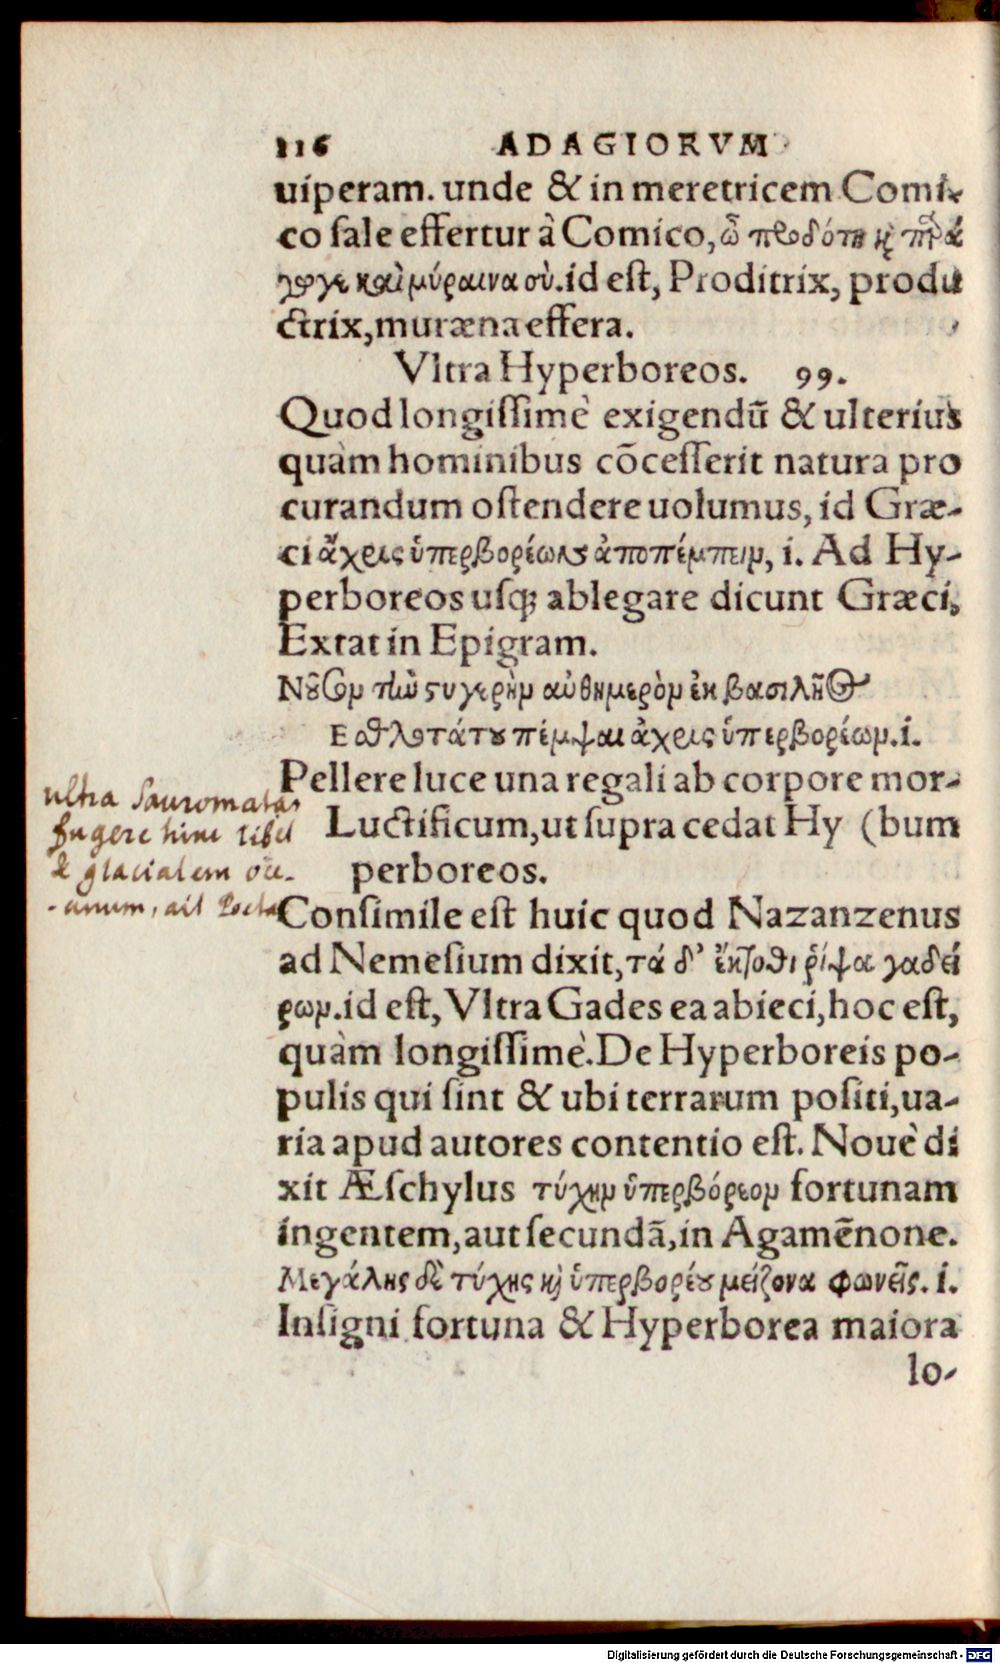 116 ADAGIORVM
uiperam. unde & in meretricem Comi-
co sale effertur à Comico, ὦ προδότι καὶ παρά
γωγε καὶ μύραινα σύ. id est, Proditrix, produ
ctrix, muræna effera.
Vltra Hyperboreos. 99.
Quod longissimè exigendū & ulterius
quàm hominibus cōcesserit natura pro
curandum ostendere uolumus, id Græ-
ci ἄχρις ὑπερβορέων ἀποπέμπειν, i. Ad Hy-
perboreos usq; ablegare dicunt Græci,
Extat in Epigram.
Νοῦσον τὼ στυγερὴν αὐθημερὸν ἐκ βασιλῆος
πέμψαι ἄχρις ὑπερβορέων. i.
Pellere luce una regali ab corpore mor-
Luctificum, ut supra cedat Hy (bum
perboreos.
Consimile est huic quod Nazanzenus
ad Nemesium dixit, τά δ' ἔκτοθι ῥίψα γαδεί
ρων. id est, Vltra Gades ea abieci, hoc est,
quàm longissimè. De Hyperboreis po-
pulis qui sint & ubi terrarum positi, ua-
ria apud autores contentio est. Nouè di
xit Æschylus τύχην ὑπερβόρεον fortunam
ingentem, aut secundā, in Agamēnone.
Μεγάλης δὲ τύχης καὶ ὑπερβορέου μείζονα φωνεῖς. i.
Insigni fortuna & Hyperborea maiora
lo-
ultra Sauromatas
fugere hinc libet
& glacialem oce-
-anum, ait Poeta
Digitalisierung gefördert durch die Deutsche Forschungsgemeinschaft - DFG